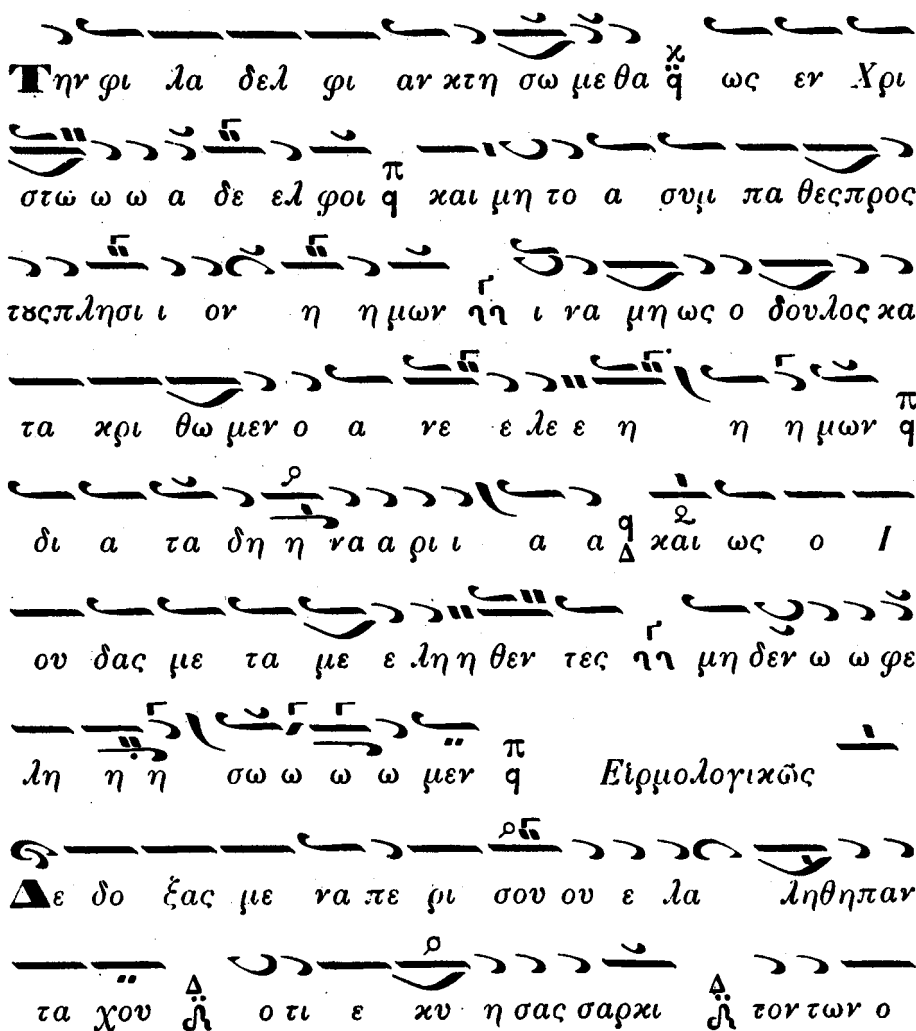 Την φι λα δελ φι αν κτη σω με θα ως εν Χρι
στω ω ω α δε ελ φοι π και μη το α συμ πα θες προς
τȣς πλησι ι ον η η μων ι να μη ως ο δουλος κα
τα κρι θω μεν ο α νε ε λε ε η η η μων π
δι α τα δη η να α ρι ι α α Δ και ως ο Ι
ου δας με τα με ε λη η θεν τες μη δεν ω ω φε
λη η η σω ω ω ω μεν π Εἱρμολογικῶς
Δε δο ξας με να πε ρι σου ου ε λα λη θη παν
τα χου Δ ο τι ε κυ η σας σαρκι Δ τον των ο